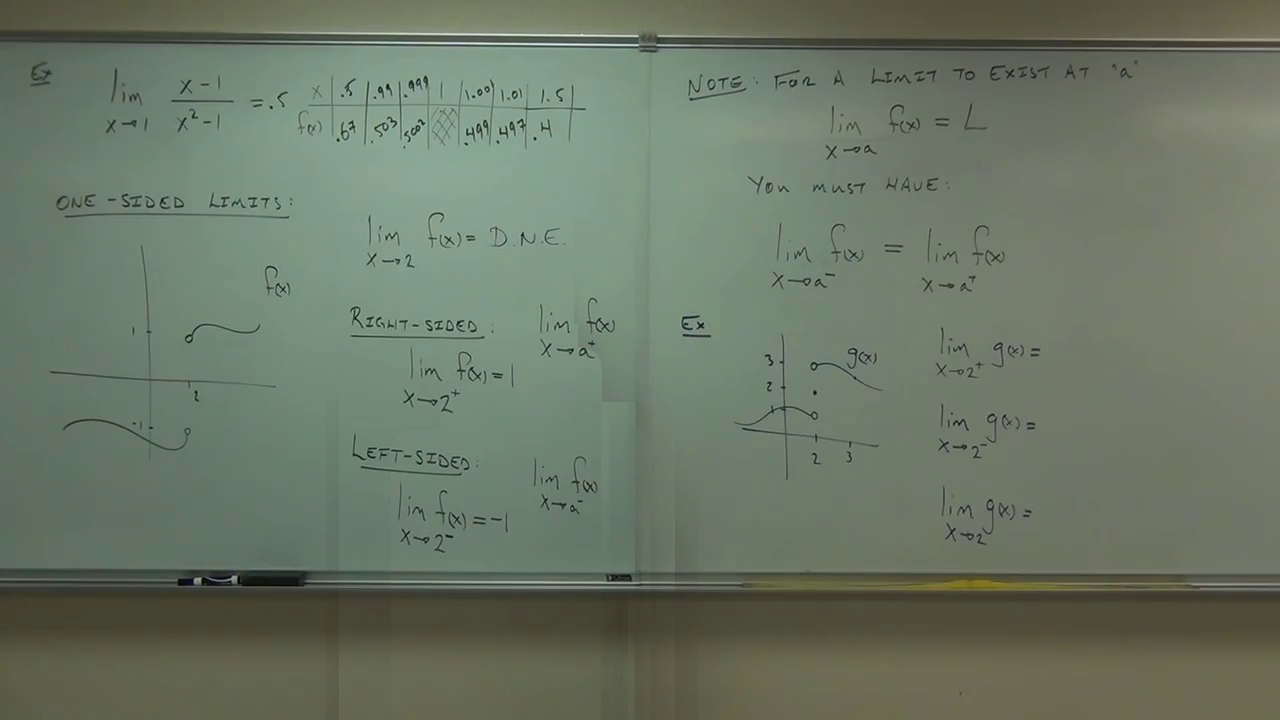 Ex
lim x→1 x-1 / x²-1 = .5
x | .5 | .99 | .999 | 1 | 1.001 | 1.01 | 1.5
f(x) | .67 | .503 | .5002 | | .499 | .497 | .4
ONE-SIDED LIMITS:
f(x)
1
2
-1
lim x→2 f(x) = D.N.E.
RIGHT-SIDED: lim x→a⁺ f(x)
lim x→2⁺ f(x) = 1
LEFT-SIDED: lim x→a⁻ f(x)
lim x→2⁻ f(x) = -1
NOTE: FOR A LIMIT TO EXIST AT "a"
lim x→a f(x) = L
YOU MUST HAVE:
lim x→a⁻ f(x) = lim x→a⁺ f(x)
Ex
3
2
1
g(x)
2 3
lim x→2⁺ g(x) =
lim x→2⁻ g(x) =
lim x→2 g(x) =